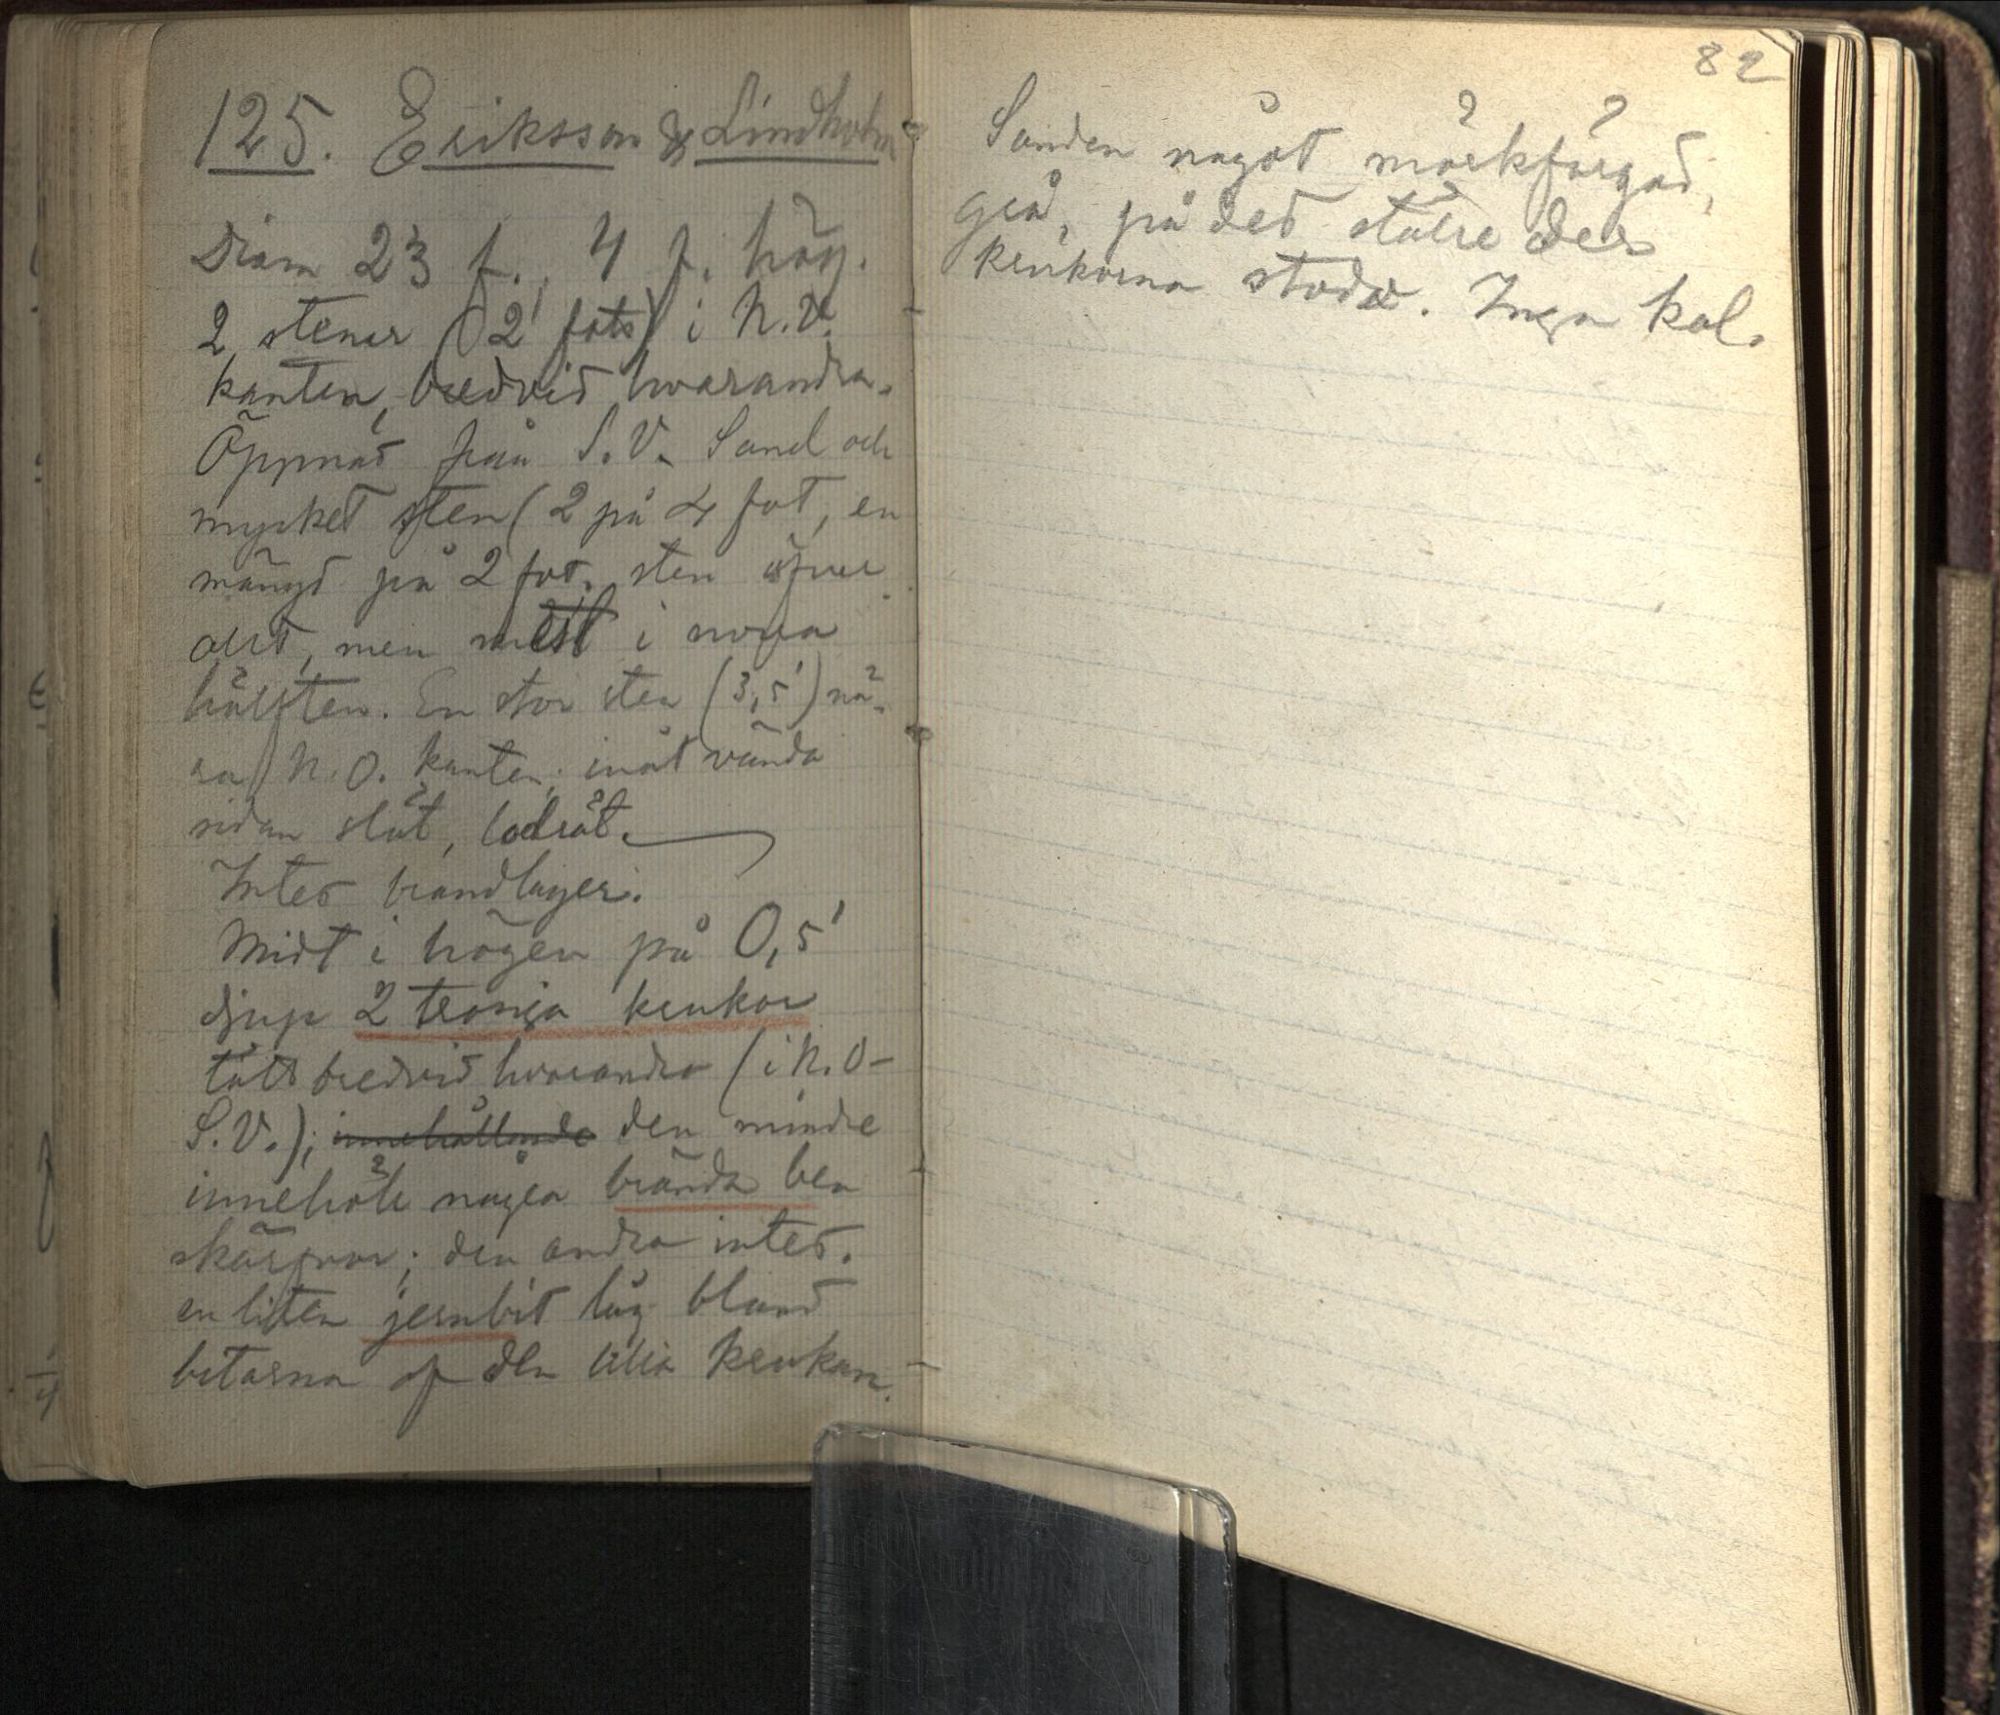 125. Eriksson & Lindholm
Diam 23 f., 4 f. hög.
2 stenar (2' fots) i N.V.
kanten, bredvid hvarandra.
Öppnad från S.V. Sand och
mycket sten (2 på 4 fot, en
mängd på 2 fot, sten öfver
allt, men mest i norra
hälften. En stor sten (3,5') nä-
ra N.O. kanten; inåt vända
sidan slät, lodrät.
Intet brandlager.
Midt i högen på 0,5'
djup 2 trasiga krukor
tätt bredvid hvarandra (i N.O-
S.V.); innehållande den mindre
innehöll några brända ben
skärfvor; den andra intet.
en liten jernbit låg bland
bitarna af den lilla krukan.
82
Sanden något mörkfärgad,
grå, på det ställe der
krukorna stodo. Inga kol.